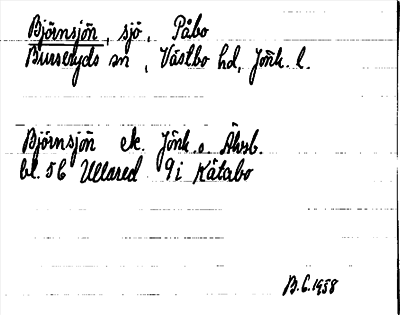 Björnsjön, sjö, Påbo
Burseryds sn, Västbo hd, Jönk. l.
Björnsjön ek. Jönk. o. Älvsb.
bl. 56 Ullared 9i Kåtabo
B.G. 1938